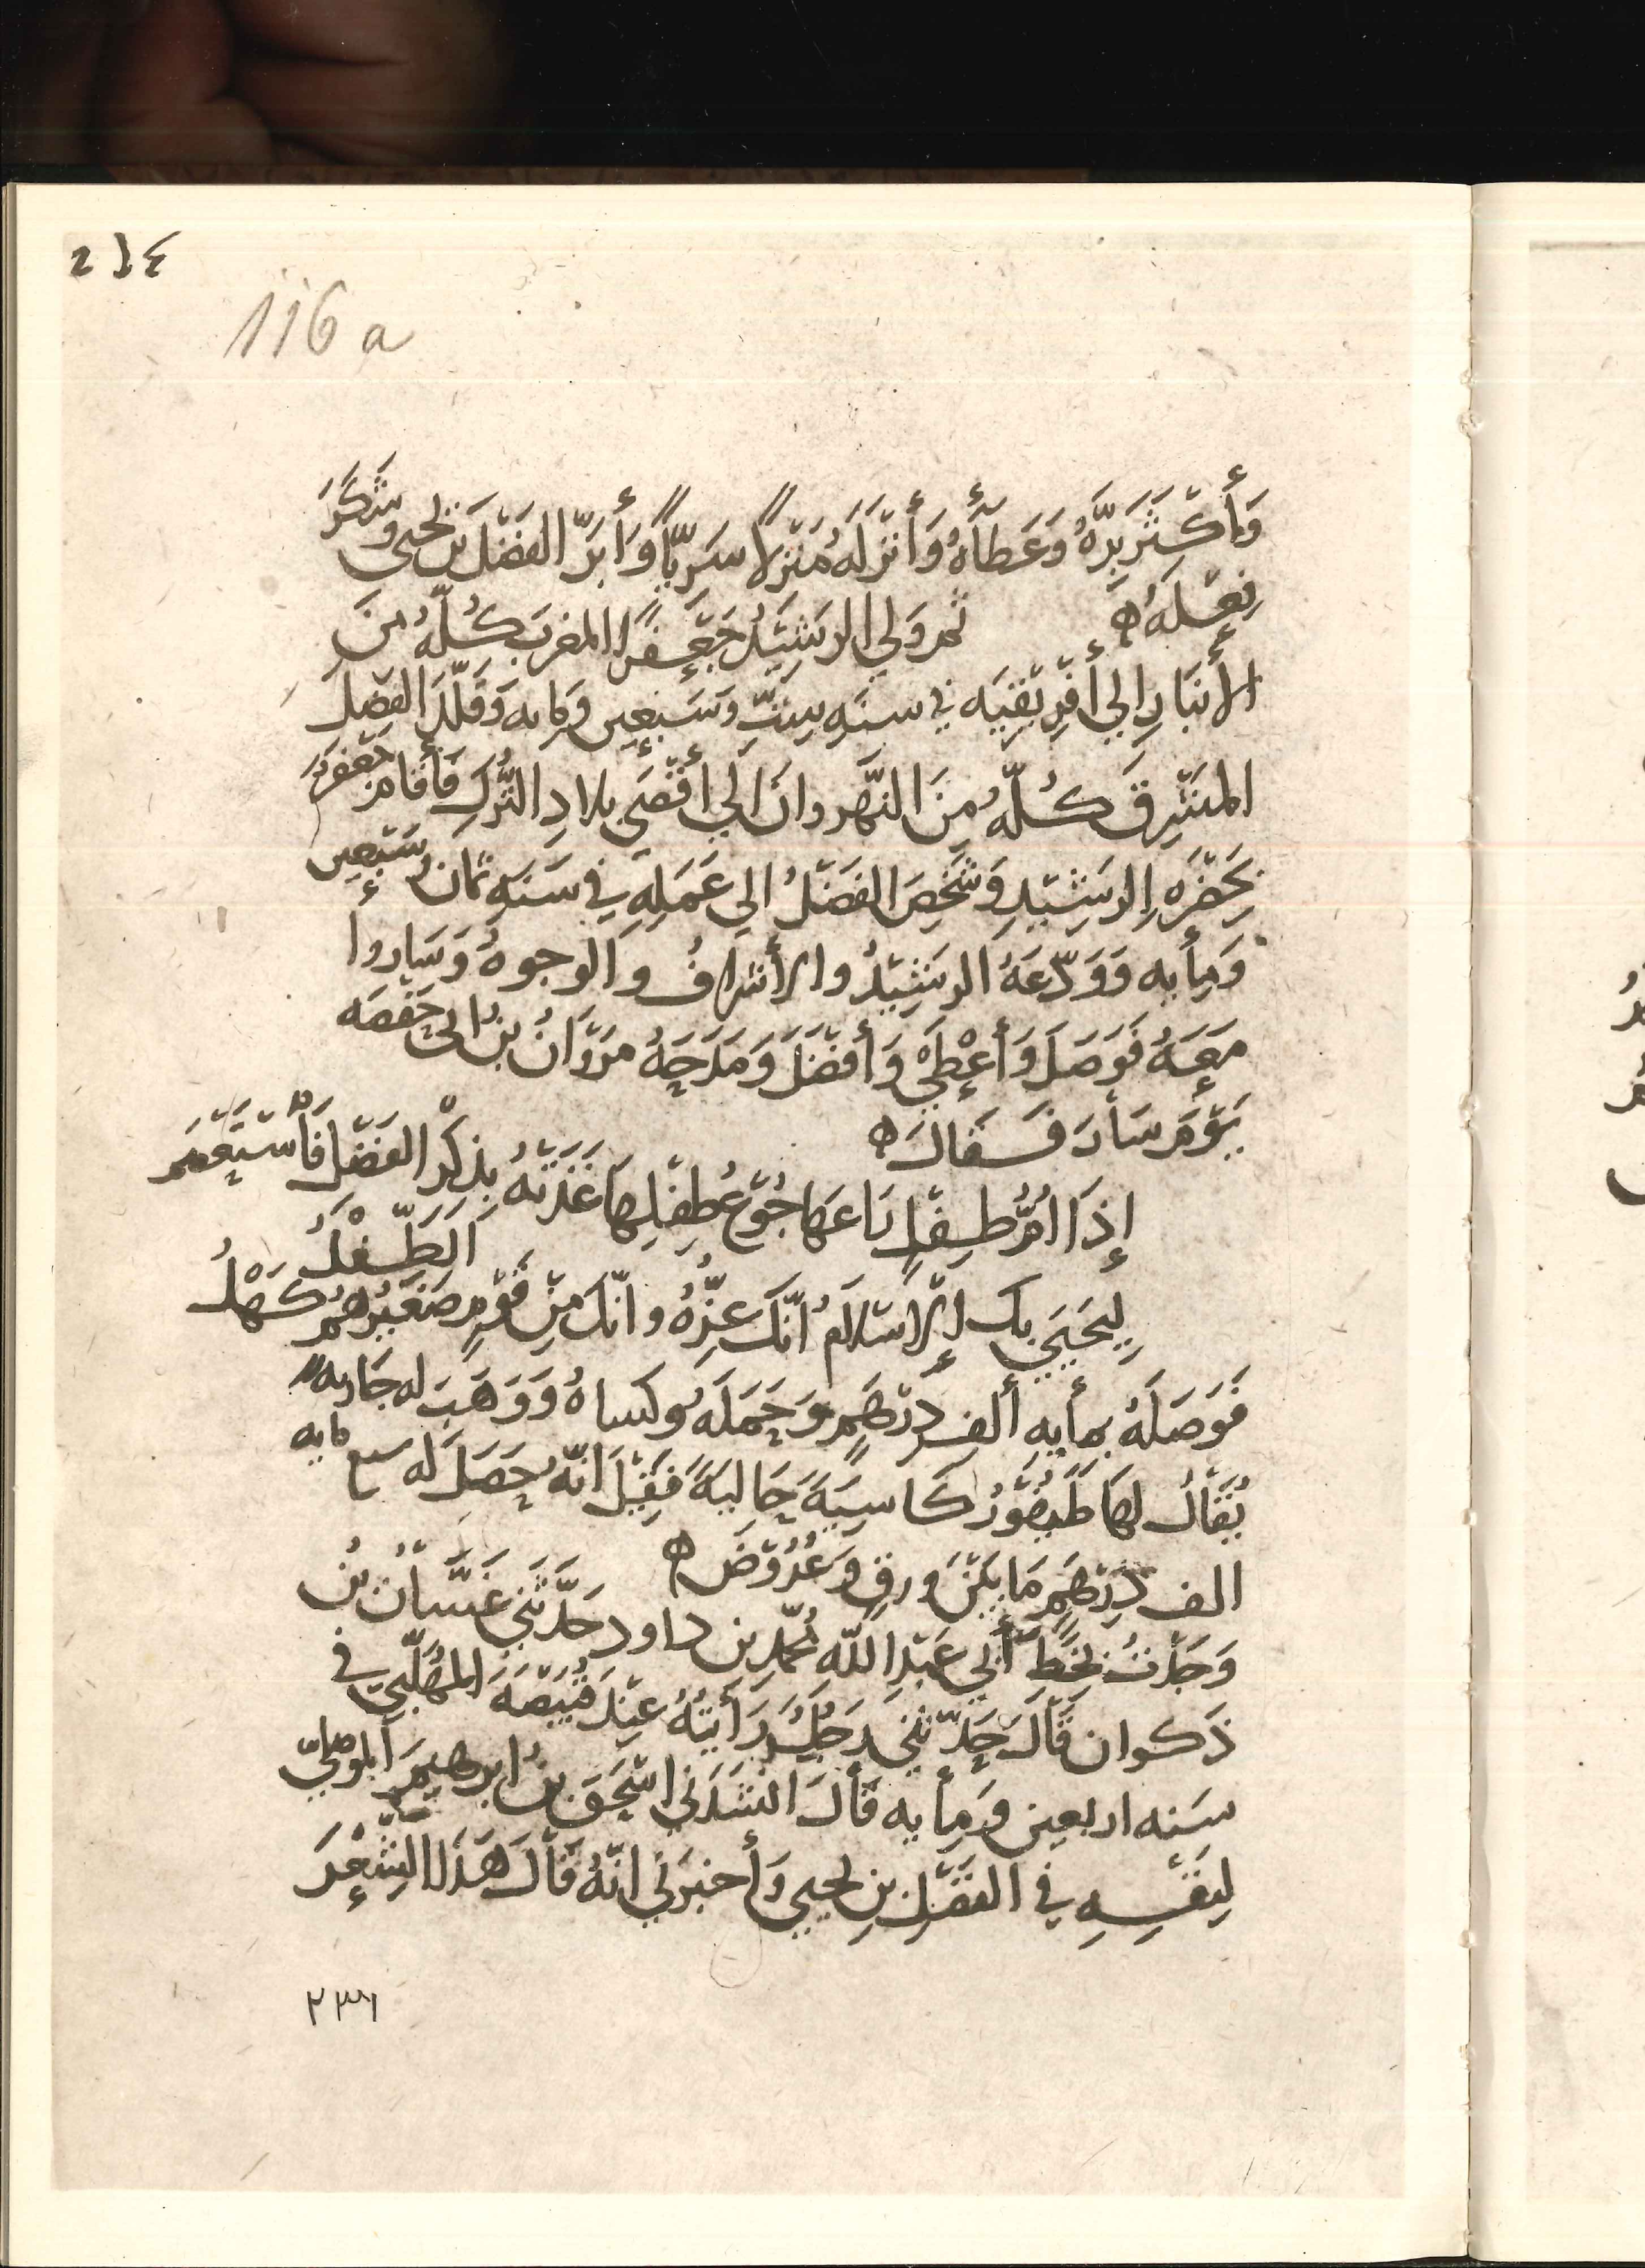 ٢١٤
116 a
وَأَكْثَرَ بِرَّهُ وَعَطَاءَهُ وَأَنْزَلَهُ مَنْزِلًا سَرِيًّا وَأَبَرَّ الفَضْلَ بن يحيى وشَكَرَ
فِعْلَهُ ه ثم وَلي الرشِيْدُ جَعْفَرًا المغربَ كُلَّهُ مِنَ
الأَنبَارِ الي أَفْرِيْقِيَه في سنَهِ سِتٍّ وسَبعِين ومايه وَقَلَّدَ الفَضْلَ
المشْرِقَ كُلَّهُ مِنَ النَّهروان الي أَقْصَي بلادِ التُّركِ فَأَقَامَ جَعْفَرٌ
بحَضْرَهِ الرشِيْدِ وَشَخَصَ الفَضْلُ الي عَمَلِهِ في سَنَهِ ثمان وسَبْعِين
وَمِأيه وَوَدّعَهُ الرشِيْدُ والأشرافُ والوجوهُ وَسَاروا
مَعَهُ فَوَصَلَ وَأَعْطَيْ وَأَفْضَلَ وَمَدَحَهُ مَرْوَانُ بنُ ابي حَفْصَه
يَوْمَ سَارَ فَقَالَ ه
إِذَا أُمُّ طِفْلٍ رَاعَهَا جُوْعُ طِفْلِهَا غَذَتْهُ بِذِكْرِ الفَضْلِ فَأَسْتَعْصَمَ
الَطِّفْلُ
لِيَحْيَي بك الإِسْلَامُ أَنَّكَ عِزُّهُ وانّكَ مِنْ قَوْمٍ صَغِيْرُهُم كَهْلُ
فَوَصَلَهُ بمأيهِ ألفِ دِرْهَمٍ وَحَمَلَهُ وكَسَاهُ وَوَهَبَ له جَاريه
يُقَالُ لها طَيفُوْرُ كَاسِيَهً حَاليَهً فَقِيْلَ انّهُ حَصَلَ لَه سبع مايه
الف دِرْهَمٍ مَا بَيْنَ ورقٍ وَعُرُوْضٍ ه
وَجَدْتُ بخَطِّ أَبي عَبْدِ اللّه محمّدِ بن داود حَدَّثَني غَسَّانُ بْنُ
ذَكوان قَالَ حَدّثَني رَجُلٌ رَأَيتُهُ عِنْدَ قَبِيْصَهَ المهَلَّبيّ في
سَنه اربعين ومِأيه قَالَ انْشَدَني اسْحَقَ بنُ ابرهيمَ الموصليّ
لِنَفْسِهِ في الفَضْلِ بنِ يحيي وَأَخبَرَني انّهُ قَالَ هَذَا الشِعْرَ
٢٣١